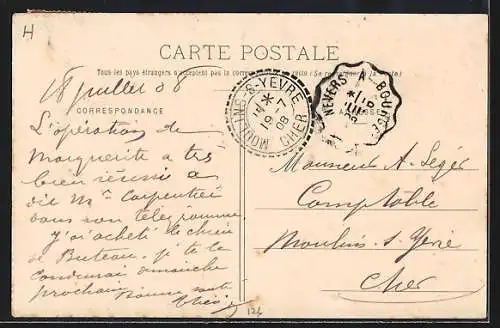 H
CARTE POSTALE
Tous les pays étrangers n'acceptent pas la correspondance au recto (Se r
CORRESPONDANCE
ADRESSE
MOULINS-S-YÈVRE
19 7
08
CHER
NEVERS A BOURGES
18 Juillet 08
L'opération de
Marguerite a très
bien réussi a
dit Mr Carpentier
dans son télégramme
J'ai acheté le chien
de Buteau, je te le
conduirai dimanche
prochain Bonne santé
Monsieur A. Léger
Comptable
Moulins s. Yèvre
Cher
126